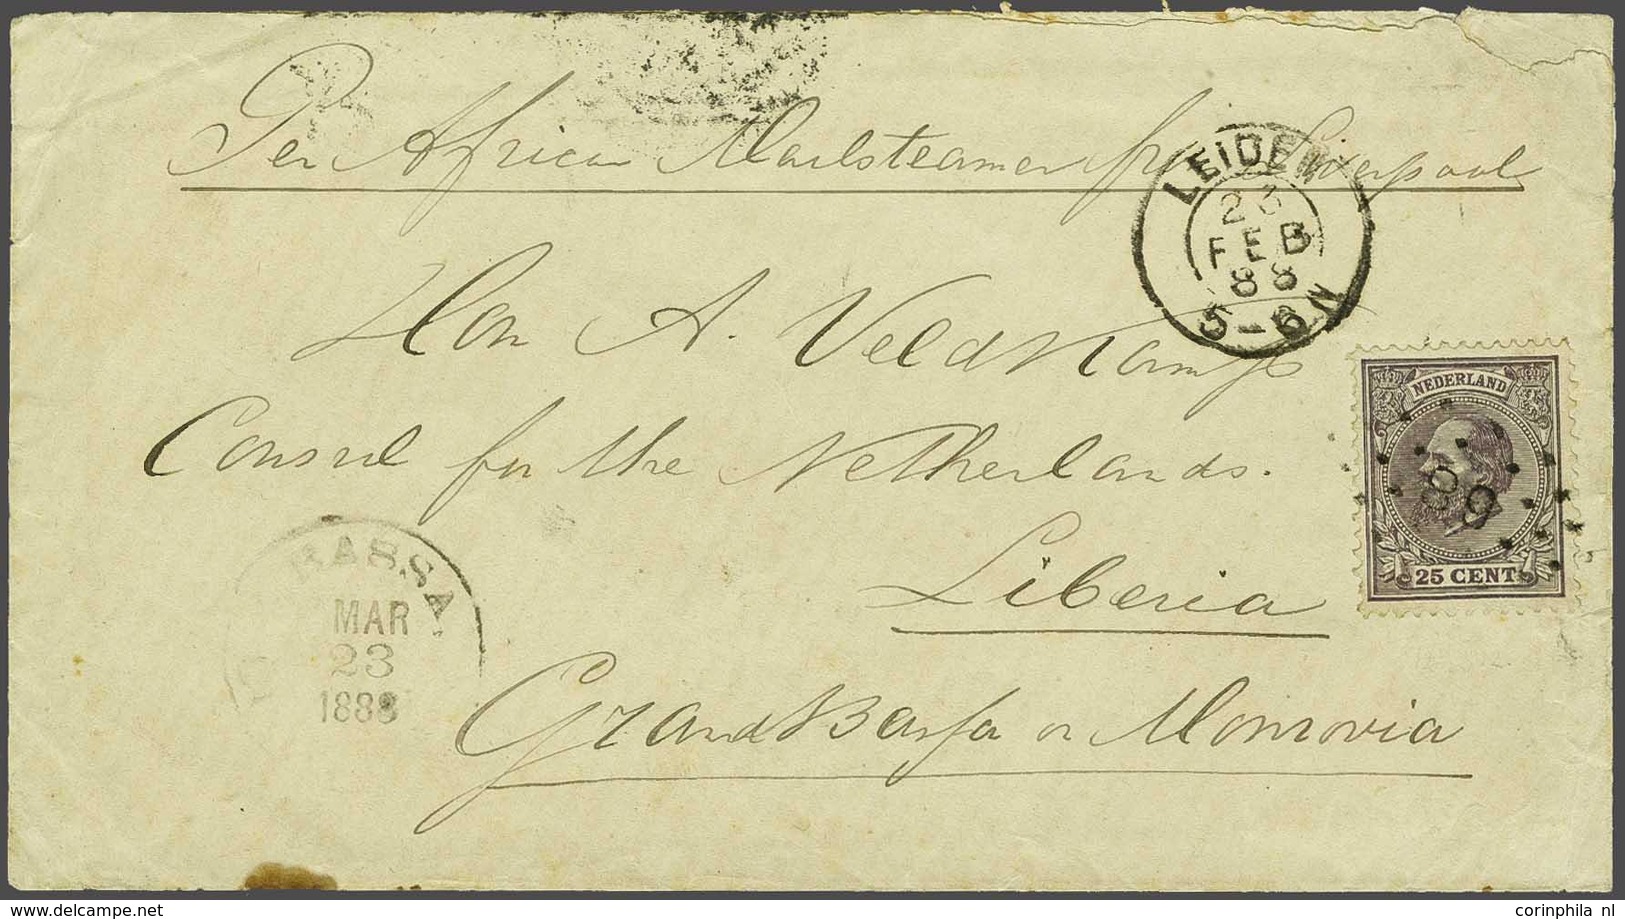 Per African Mailsteamer from Liverpool
LEIDEN
FEB
88
5-6 N
Hon A. Veldkamp
Consul for the Netherlands.
Liberia
Grand Bassa or Monrovia
NEDERLAND
25 CENT
BASSA
MAR
23
1888
delcampe.net
corinphila nl